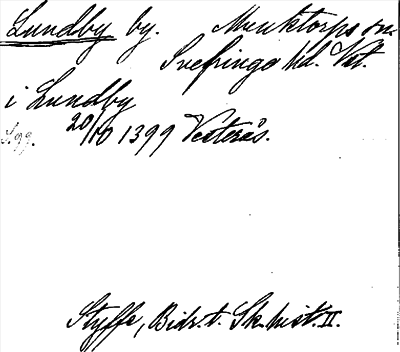 Lundby by. Munktorps sn.
Snefringe hd. Vstl.
i Lundby
20/10 1399 Vesterås.
S. 99.
Styffe, Bidr. t. Sk. hist. II.